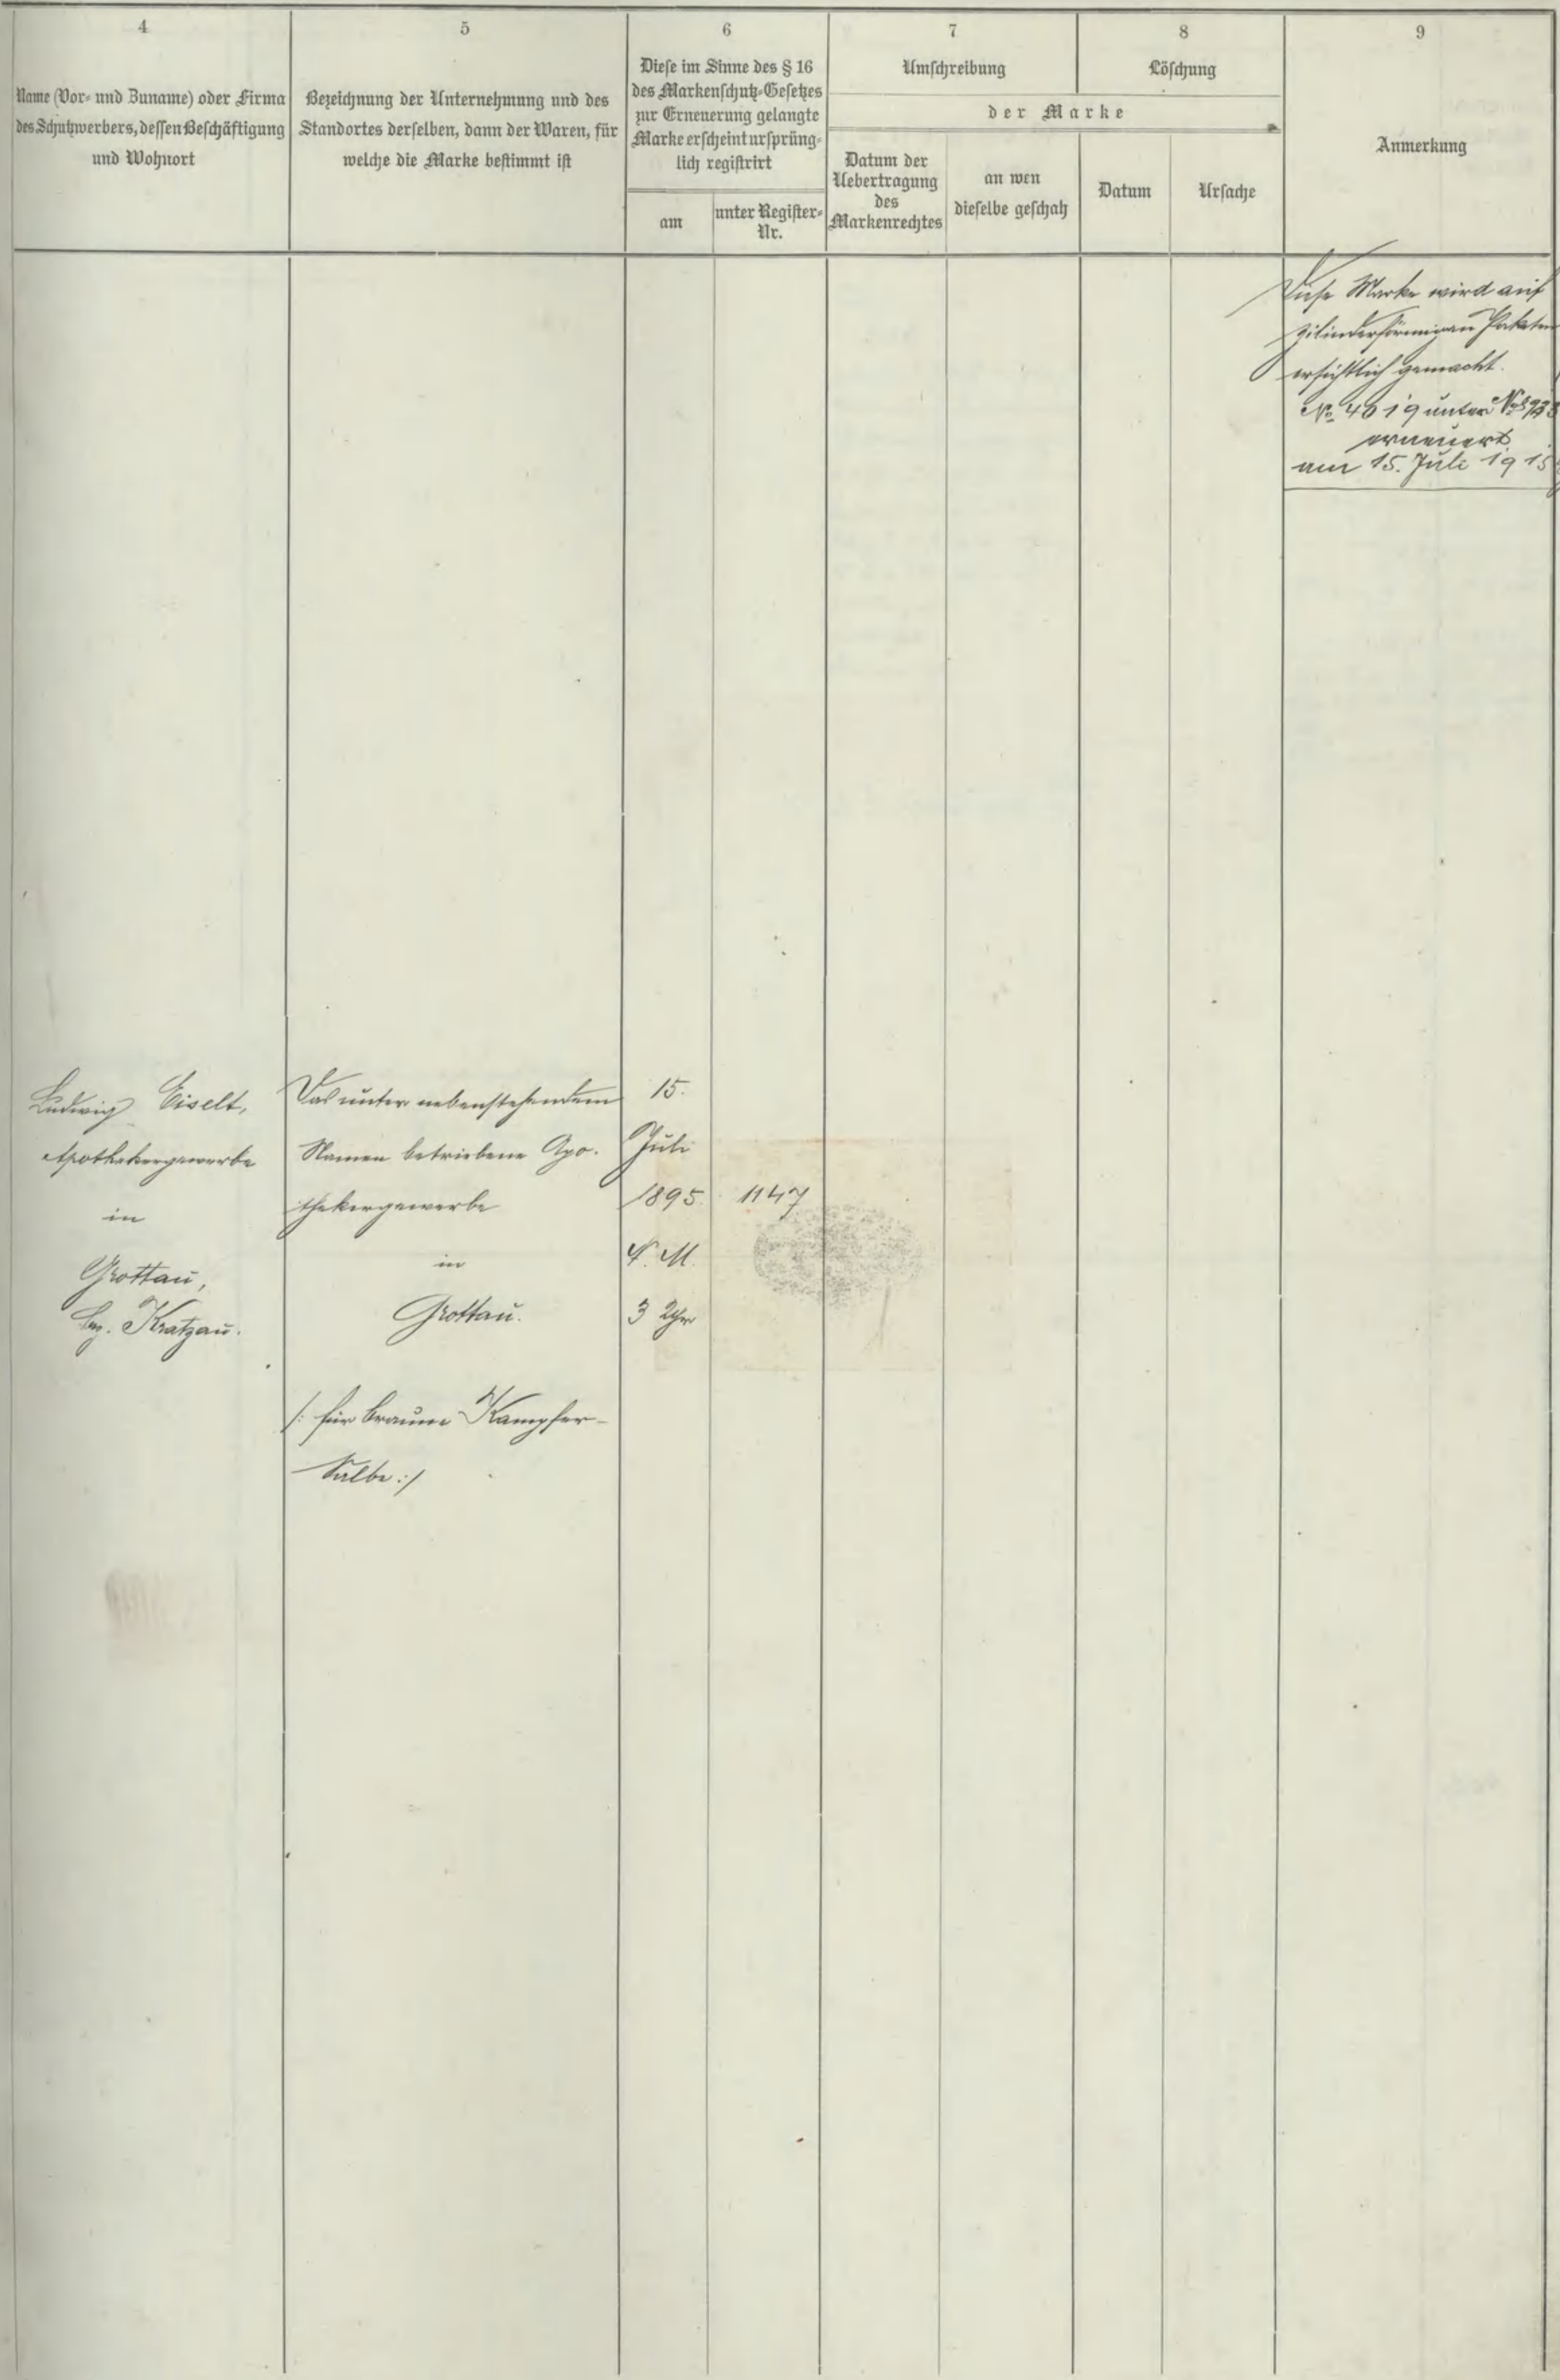 4
Name (Vor- und Zuname) oder Firma
des Schutzwerbers, dessen Beschäftigung
und Wohnort
5
Bezeichnung der Unternehmung und des
Standortes derselben, dann der Waren, für
welche die Marke bestimmt ist
6
Diese im Sinne des § 16
des Markenschutz-Gesetzes
zur Erneuerung gelangte
Marke erscheint ursprüng-
lich registrirt
am
unter Register-
Nr.
7
Umschreibung
8
Löschung
der Marke
Datum der
Uebertragung
des
Markenrechtes
an wen
dieselbe geschah
Datum
Ursache
9
Anmerkung
Diese Marke wird auf
zilinderförmigen Paketen
ersichtlich gemacht.
No 4019 unter No
erneuert
am 15. Juli 1915
Ludwig Eiselt,
Apothekergewerbe
in
Grottau,
Bez. Kratzau.
Das unter nebenstehendem
Namen betriebene Apo-
thekergewerbe
in
Grottau.
/: für braune Kampfer-
Salbe :/
15.
Juli
1895.
N. M.
3 Uhr
1147